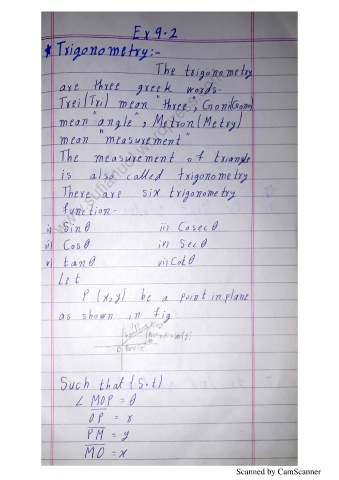 Ex 9.2
* Trigonometry:-
The trigonometry
are three greek words.
Trei(Tri) mean "three", Goni(Gono)
mean "angle", Metron(Metry)
mean "measurement"
The measurement of triangle
is also called trigonometry
There are six trigonometry
function-
i) Sinθ ii) Cosecθ
iii) Cosθ iv) Secθ
v) tanθ vi) Cotθ
Let
P (x,y) be a point in plane
as shown in fig
Such that (S.t)
∠ MOP = θ
OP = r
PM = y
MO = x
Scanned by CamScanner